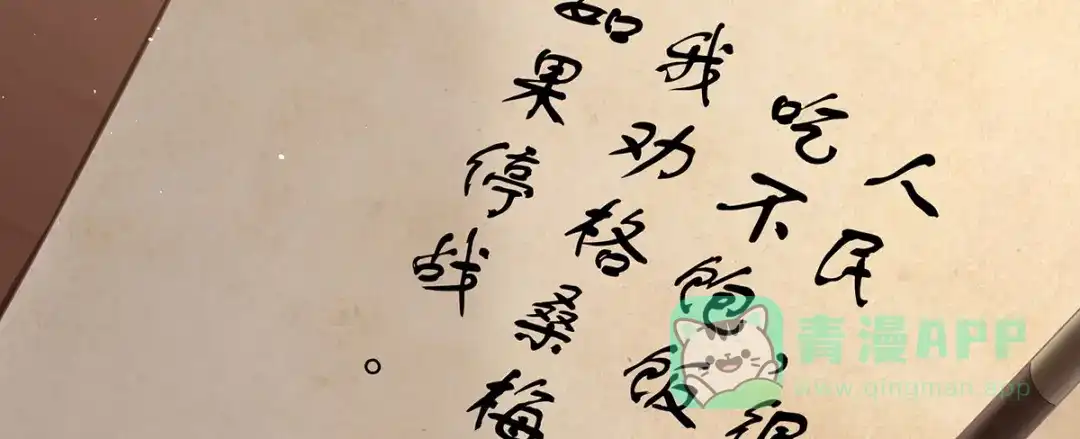 人民
吃不饱饭
我劝格桑梅
如果停战。
青漫APP
www.qingman.app